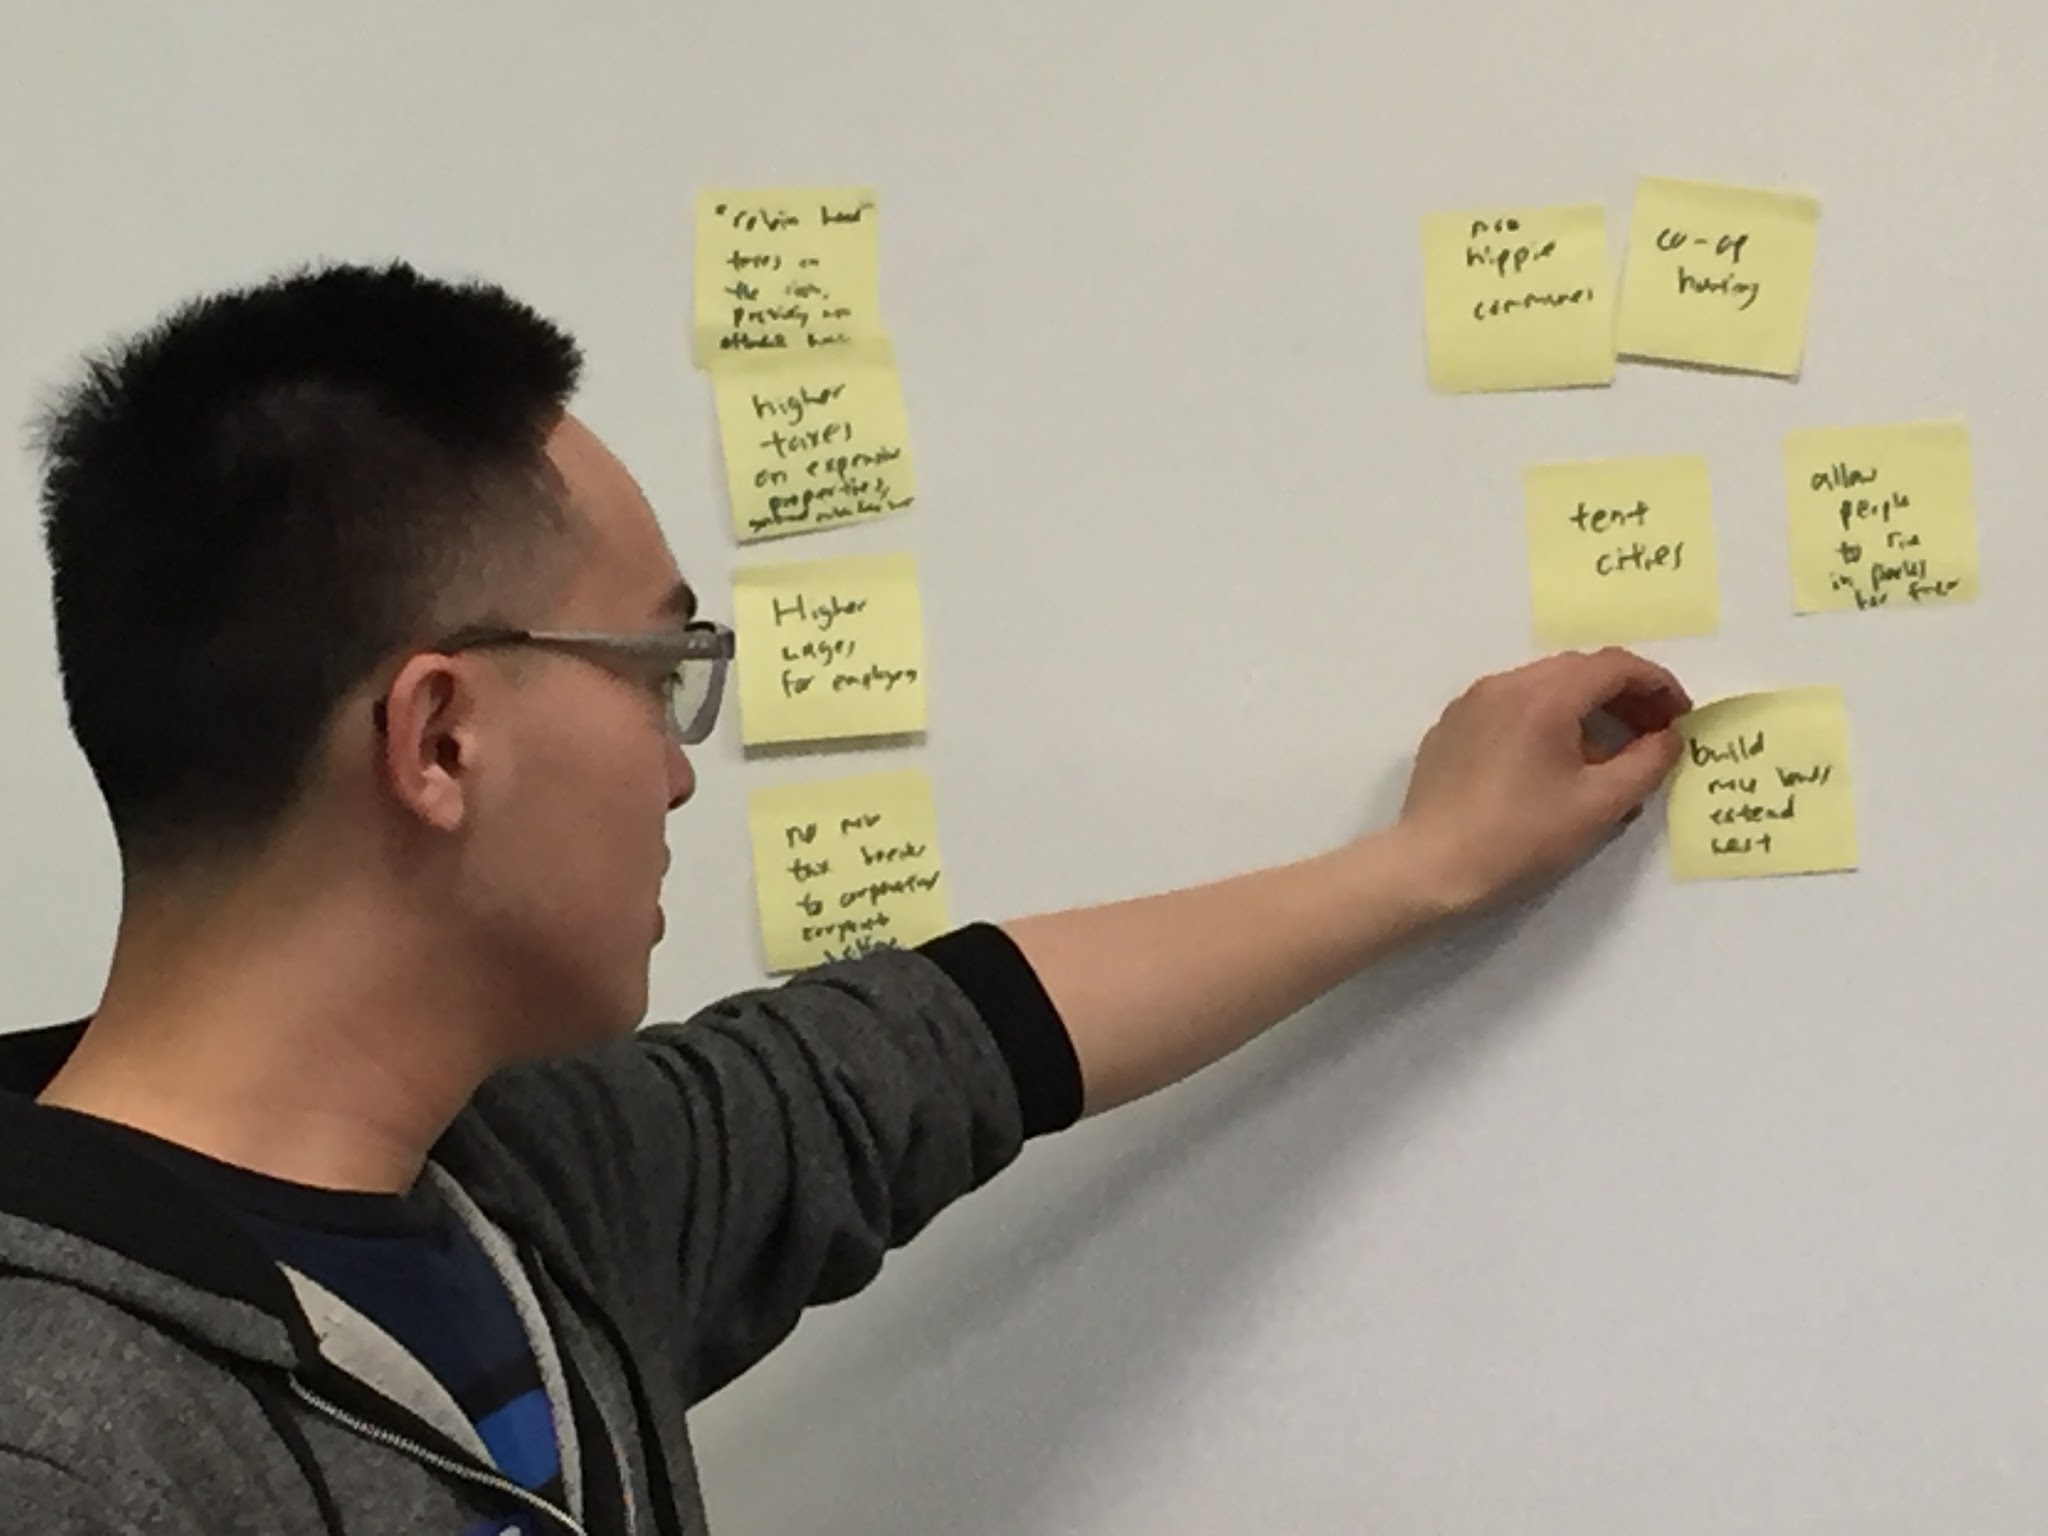 "robin hood"
taxes on
the rich,
providing
higher
taxes
on expensive
properties,
Higher
wages
for employees
no
tax breaks
to corporations
neo
hippie
communes
co-op
housing
tent
cities
allow
people
to
in parks
for free
build
extend
west